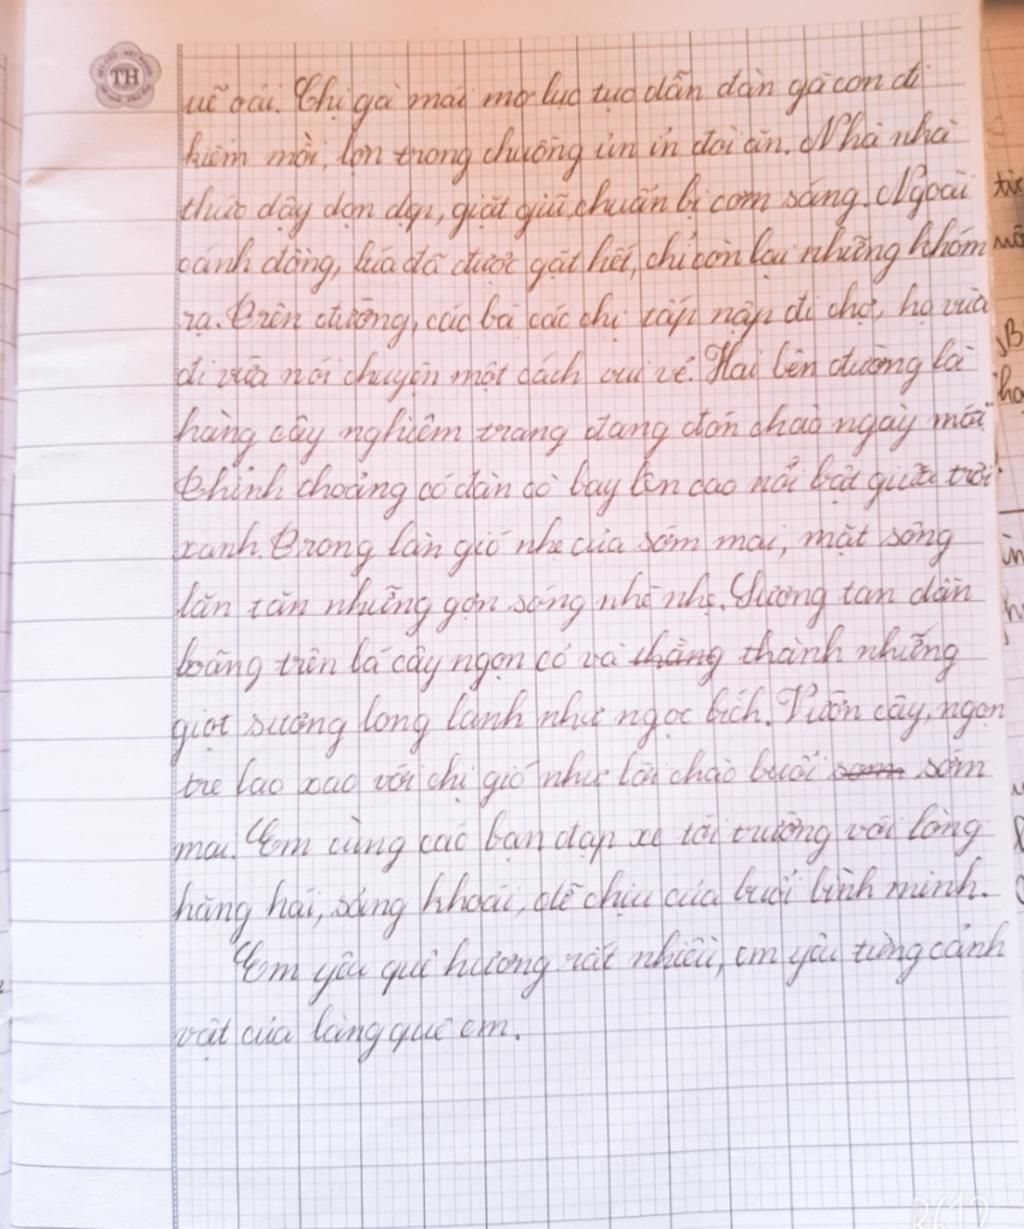 TH
uể oải. Chị gà mái mơ lục tục dẫn đàn gà con đi
kiếm mồi, lợn trong chuồng ủn ỉn đòi ăn. Nhà nhà
thức dậy dọn dẹp, giặt giũ, chuẩn bị cơm sáng. Ngoài
cánh đồng, lúa đã được gặt hết, chỉ còn lại những khóm
rạ. Trên đường, các bà các chị tấp nập đi chợ, họ vừa
đi vừa nói chuyện một cách vui vẻ. Hai bên đường là
hàng cây nghiêm trang đang đón chào ngày mới.
Thỉnh choảng có đàn cò bay lên cao nổi bật giữa trời
xanh. Trong làn gió nhẹ của sớm mai, mặt sông
lăn tăn những gợn sóng nhè nhẹ. Sương tan dần
loãng trên lá cây ngọn cỏ và thành những
giọt sương long lanh như ngọc bích. Vườn cây, ngọn
tre lao xao với chị gió như lời chào buổi sớm
mai. Em cùng các bạn đạp xe tới trường với lòng
hăng hái, sảng khoái, dễ chịu của buổi bình minh.
Em yêu quê hương rất nhiều, em yêu từng cảnh
vật của làng quê em.